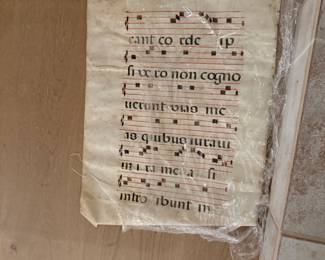 rant co rde ip
si ve ro non cogno
verunt vias me
as quibus iuravi
in i ra me a si
intro ibunt in